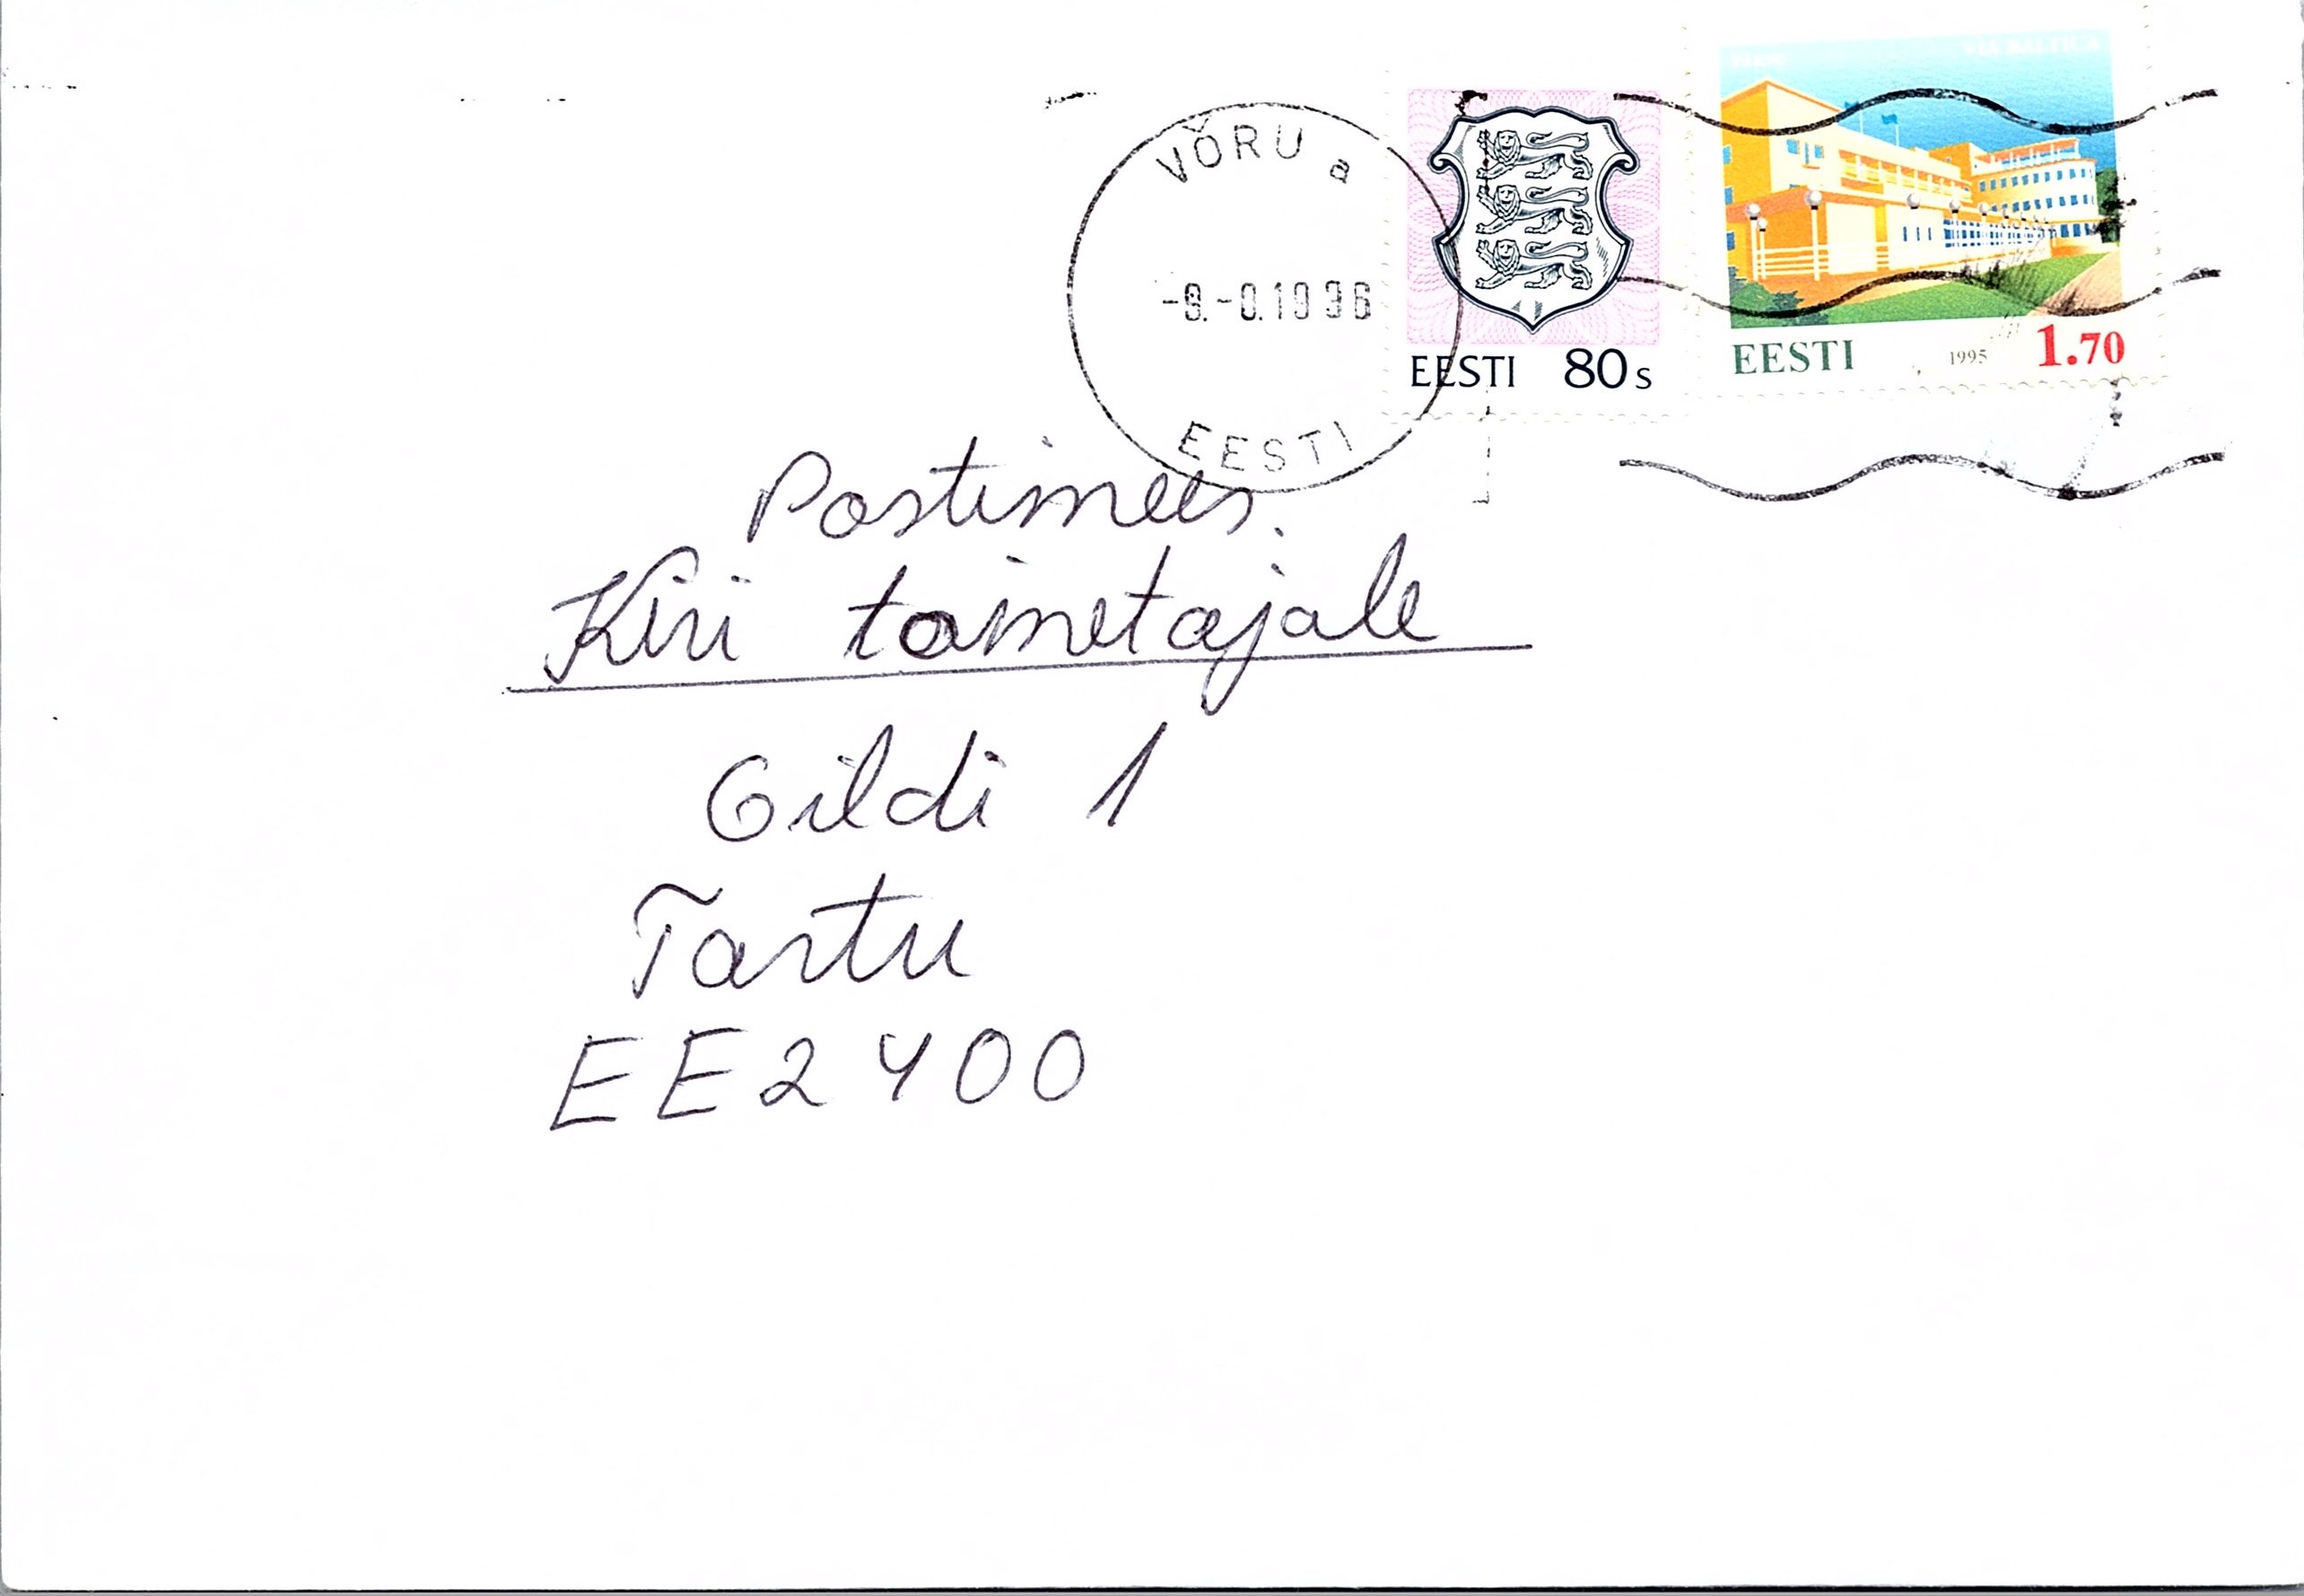 VIA BALTICA
VÕRU a
EESTI
EESTI 80s
EESTI 1995 1.70
Postimees.
Kiri toimetajale
Gildi 1
Tartu
EE2400